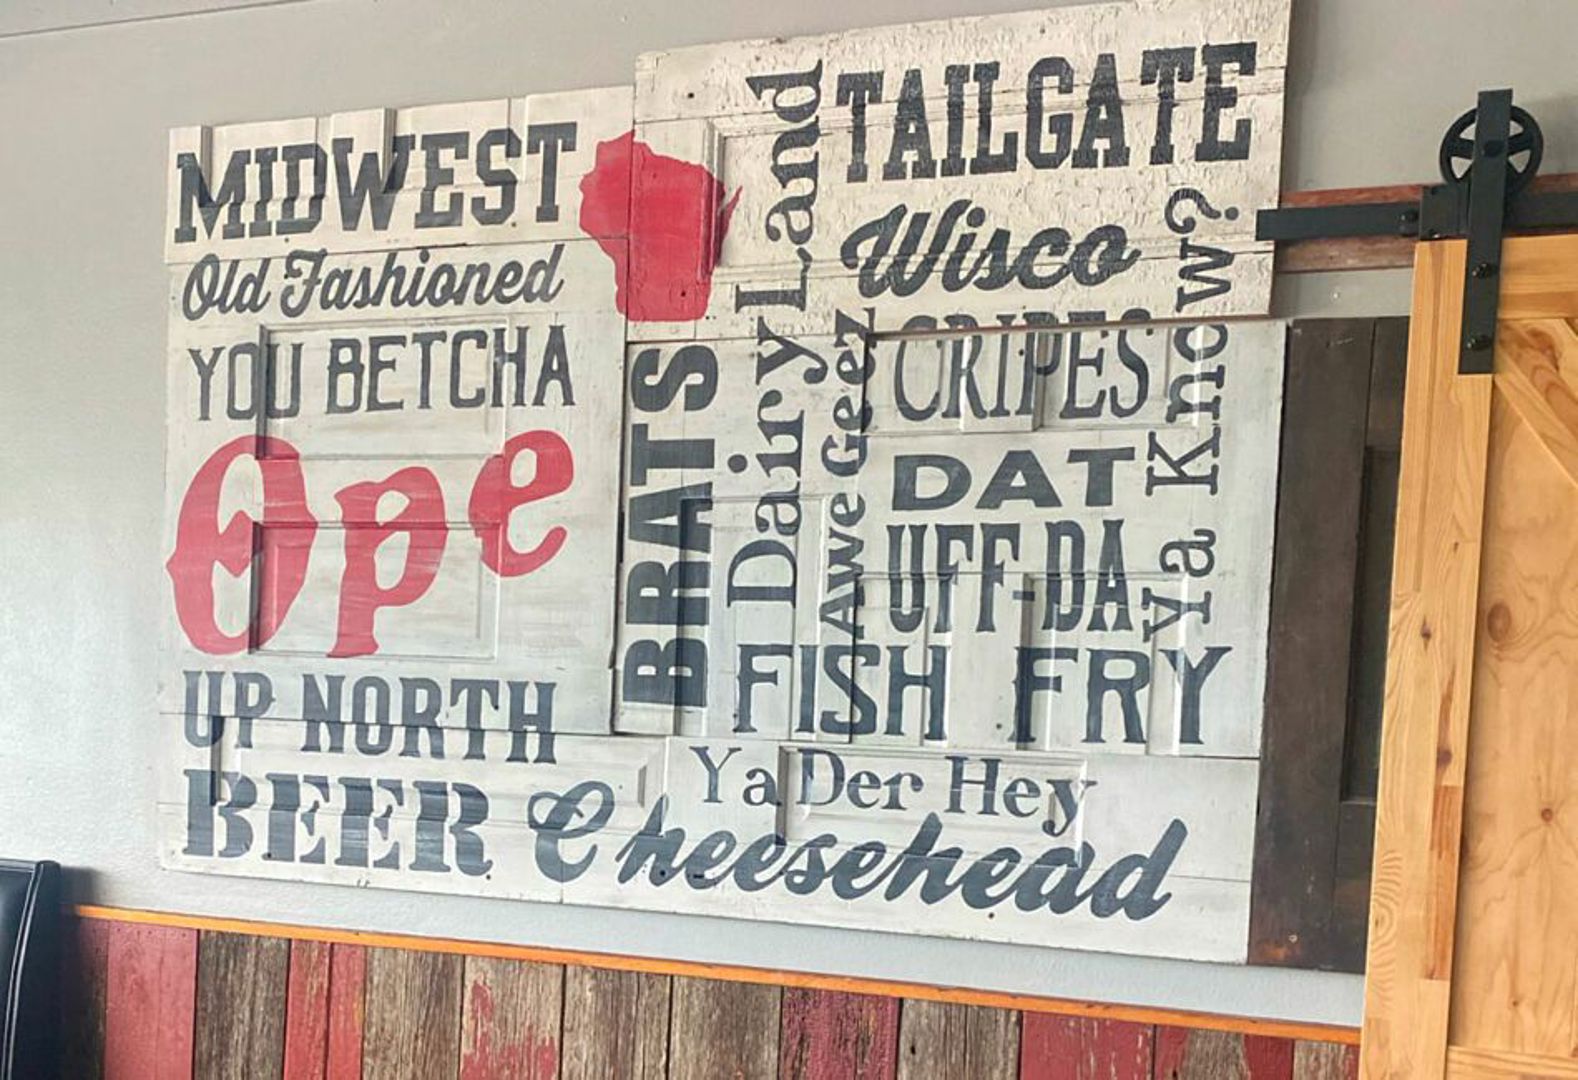 MIDWEST
Old Fashioned
YOU BETCHA
Ope
UP NORTH
BEER
BRATS
Dairy Land
TAILGATE
Wisco
Awe Geez
CRIPES
DAT
UFF-DA
Ya Know?
FISH FRY
Ya Der Hey
Cheesehead